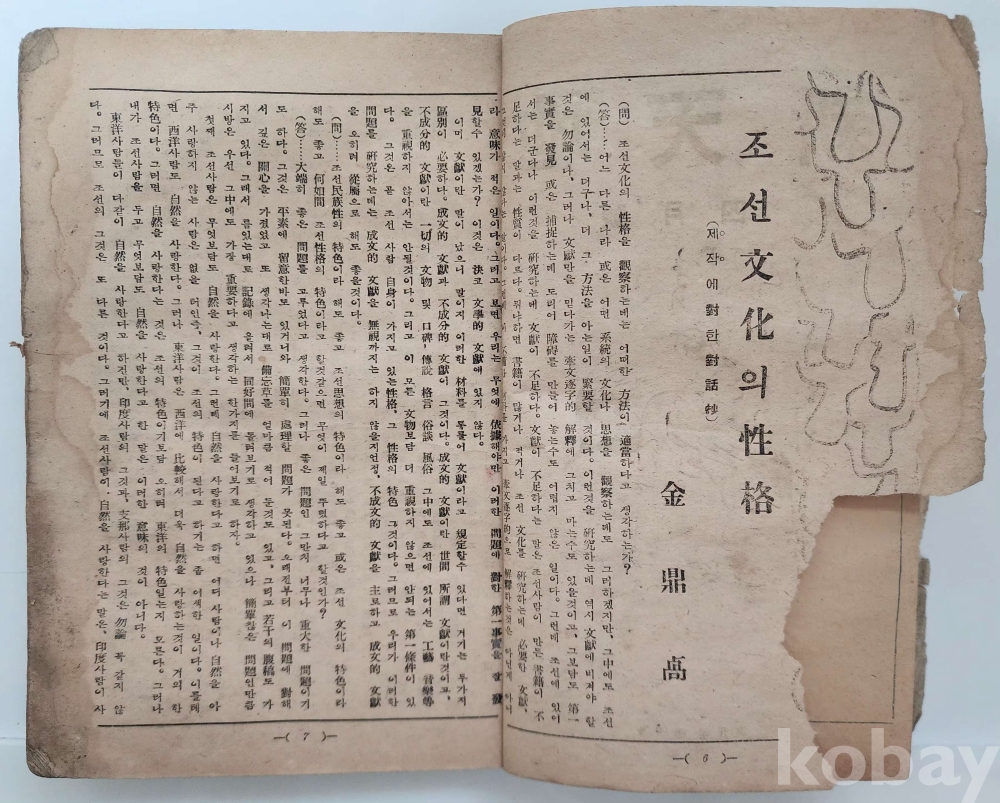 조선文化의性格
(제작에對한對話抄)
金鼎卨
(問) 조선文化의 性格을 觀察하는데는 어떠한 方法이 適當하다고 생각하는가?
(答)……어느 다른 나라 或은 어떤 系統의 文化나 思想을 觀察하는데도 그러하겠지만, 그中에도 조선
에 있어서는 더구나, 더 그 方法을 아는일이 緊要할 것이다. 이런것을 硏究하는데 역시 文獻에 비겨야 할
것은 勿論이나, 그러나 文獻만을 믿다가는 尋文逐字的 解釋에 그치고 마는수도 있을것이고, 그보담도 第一
事實을 發見 或은 捕捉하는데 도리어 障碍를 만들어 놓는수도 어렵지 않은 일이다. 그런데 조선에 있어
서는 더군다나 이런것을 硏究하는데 文獻이 不足하다. 文獻이 不足하다는 말은 조선사람이 만든 書籍이 不
足하다는 말과는 性質이 다르다. 웨냐하면 書籍이 많거나 적거나 조선 文化를 硏究하는데 必要한 文獻,
—( 6 )—
라, 意味가 적은 일이다. 그러고 보면 우리는 무엇에 依據해야만 이러한 問題에 對한 第一事實을 찰 發
見할수 있겠는가? 이것은 決코 文學的 文獻에 있지 않다.
이미 文獻이란 말이 났으니 말이지 이러한 材料를 통틀어 文獻이라고 規定할수 있다면 거기는 두가지
區別이 必要하다. 成文的 文獻과 不成文的 文獻이 그것이다. 成文的 文獻이란 世間 所謂 文獻이란것이고,
不成文的 文獻이란 一切의 文物 및 口碑, 傳說 格言 俗談 風俗 그中에도 조선에 있어서는 工藝 音樂等
을 重視하지 않아서는 안될것이다. 그리고 이 모든 文物보담 더 重視하지 않으면 안되는 第一條件이 있
다. 그것은 곧 조선 사람 自身이 가지고 있는性格, 그 性格의 特色 그것이다. 그러므로 우리가 이러한
問題를 硏究하는데는 成文的 文獻을 無視까지는 하지 않을지언정, 不成文的 文獻을 主로하고 成文的 文獻
을 오히려 從屬으로 해도 좋을것이다.
(問)……조선民族性의 特色이라 해도 좋고 조선思想의 特色이라 해도 좋고 或은 조선 文化의 特色이라
해도 좋고 何如間 조선性格의 特色이라고 할것같으면 무엇이 제일 뚜렷하다고 할것인가?
(答)……大端히 좋은 問題를 고루었다고 생각한다. 그러나 좋은 問題인 그만치 너무나 重大한 問題이기
도 하다. 그것은 平素에 留意한바도 있거니와 簡單히 處理할 問題가 못된다. 오래전부터 이 問題에 對해
서 깊은 關心을 가졌었고 또 생각나는대로 備忘草를 얼마큼 적어 둔것도 있고, 그리고 若干의 腹稿도 가
지고 있다. 그래서 틈있는대로 記錄에 옮겨서 同好間에 돌려보기로 생각하고 있으나 簡單찮은 問題인만큼
시방은 우선 그中에도 가장 重要하다고 생각하는 한가지를 들어보기로 하자.
첫째 조선사람은 무엇보담도 自然을 사랑한다. 그런데 自然을 사랑한다고 하면 어디 사람이나 自然을 아
주 사랑하지 않는 사람은 없을 터인즉, 그것이 조선의 特色이 된다고 하기는 좀 어색한 일이다. 이를테
면 西洋사람도 自然을 사랑한다. 그러나 東洋사람은 西洋에 比較해서 더욱 自然을 사랑하는것이 거의 한
特色이다. 그러면 自然을 사랑한다는것은 조선의 特色이기보담 오히려 東洋의 特色일는지 모른다. 그러나
내가 조선사람을 두고 무엇보담도 自然을 사랑한다고 한 말은 이러한 意味의 것이 아니다.
東洋사람들이 다같이 自然을 사랑한다고 하지만, 印度사람의 그것과, 支那사람의 그것은 勿論 똑 같지 않
다. 그러므로 조선의 그것은 또 다른 것이다. 그러기에 조선사람이 自然을 사랑한다는 말은, 印度사람이 사
—( 7 )—
kobay